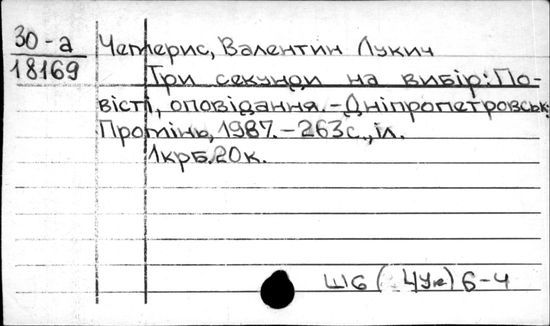 30-а Чемерис, Валентин Лукич
18169 Три секунди на вибір: По-
вісті, оповідання.-Дніпропетровськ:
Промінь, 1987.-263с., іл.
1крб.20к.
Ш6 ( 4Ук) 6-4